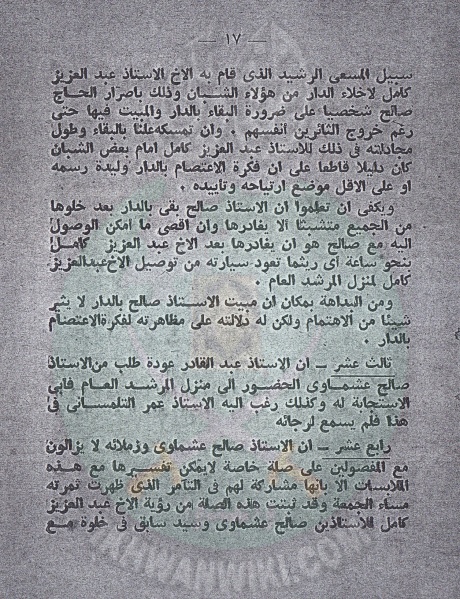 — ١٧ —
سبيل المسعى الرشيد الذى قام به الاخ الاستاذ عبد العزيز
كامل لاخلاء الدار من هؤلاء الشبان وذلك باصرار الحاج
صالح شخصيا على ضرورة البقاء بالدار والمبيت فيها حتى
رغم خروج الثائرين انفسهم . وان تمسكه علنا بالبقاء وطول
مجادلته فى ذلك للاستاذ عبد العزيز كامل امام بعض الشبان
كان دليلا قاطعا على ان فكرة الاعتصام بالدار وليدة رسمه
او على الاقل موضع ارتياحه وتأييده .
ويكفى ان تعلموا ان الاستاذ صالح بقى بالدار بعد خلوها
من الجميع متشبثا الا يغادرها وان اقصى ما امكن الوصول
اليه مع صالح هو ان يغادرها بعد الاخ عبد العزيز كامل
بنحو ساعة أى ريثما تعود سيارته من توصيل الاخ عبدالعزيز
كامل لمنزل المرشد العام .
ومن البداهة بمكان ان مبيت الاستاذ صالح بالدار لا يثير
شيئا من الاهتمام ولكن له دلالته على مظاهرته لفكرة الاعتصام
بالدار .
ثالث عشر — ان الاستاذ عبد القادر عودة طلب من الاستاذ
صالح عشماوى الحضور الى منزل المرشد العام فأبى
الاستجابة له وكذلك رغب اليه الاستاذ عمر التلمسانى فى
هذا فلم يسمع لرجائه
رابع عشر — ان الاستاذ صالح عشماوى وزملائه لا يزالون
مع المفصولين على صلة خاصة لايمكن تفسيرها مع هذه
الملابسات الا بأنها مشاركة لهم فى التآمر الذى ظهرت ثمرته
مساء الجمعة وقد ثبتت هذه الصلة من رؤية الاخ عبد العزيز
كامل للأستاذين صالح عشماوى وسيد سابق فى خلوة مع
IKHWANWIKI.COM